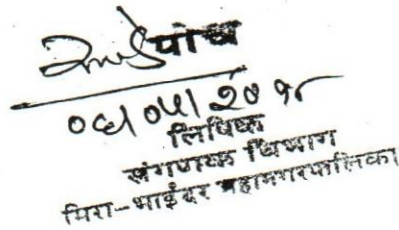 पांच
०६/०५/२०१८
लिपिक
संगणक विभाग
मिरा-भाईंदर महानगरपालिका